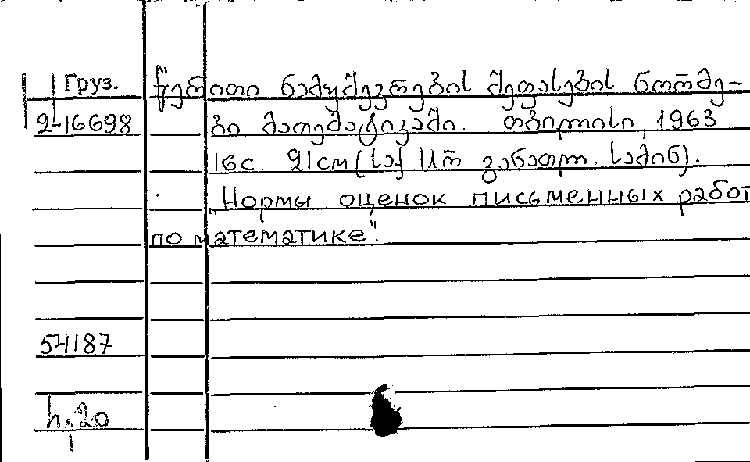 Груз. წერითი ნამუშევრების შეფასების ნორმე-
2-16698 ბი მათემატიკაში. თბილისი, 1963
16с 21см (საქ სსრ განათლ. სამინ).
„Нормы оценок письменных работ
по математике".
54187
h,20